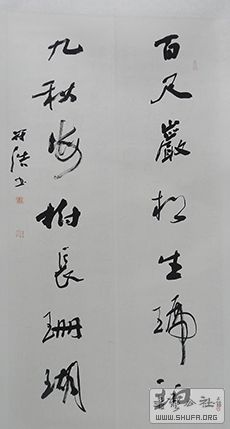 百尺巖松生琥珀
九秋海樹長珊瑚
公社
WWW.SHUFA.ORG